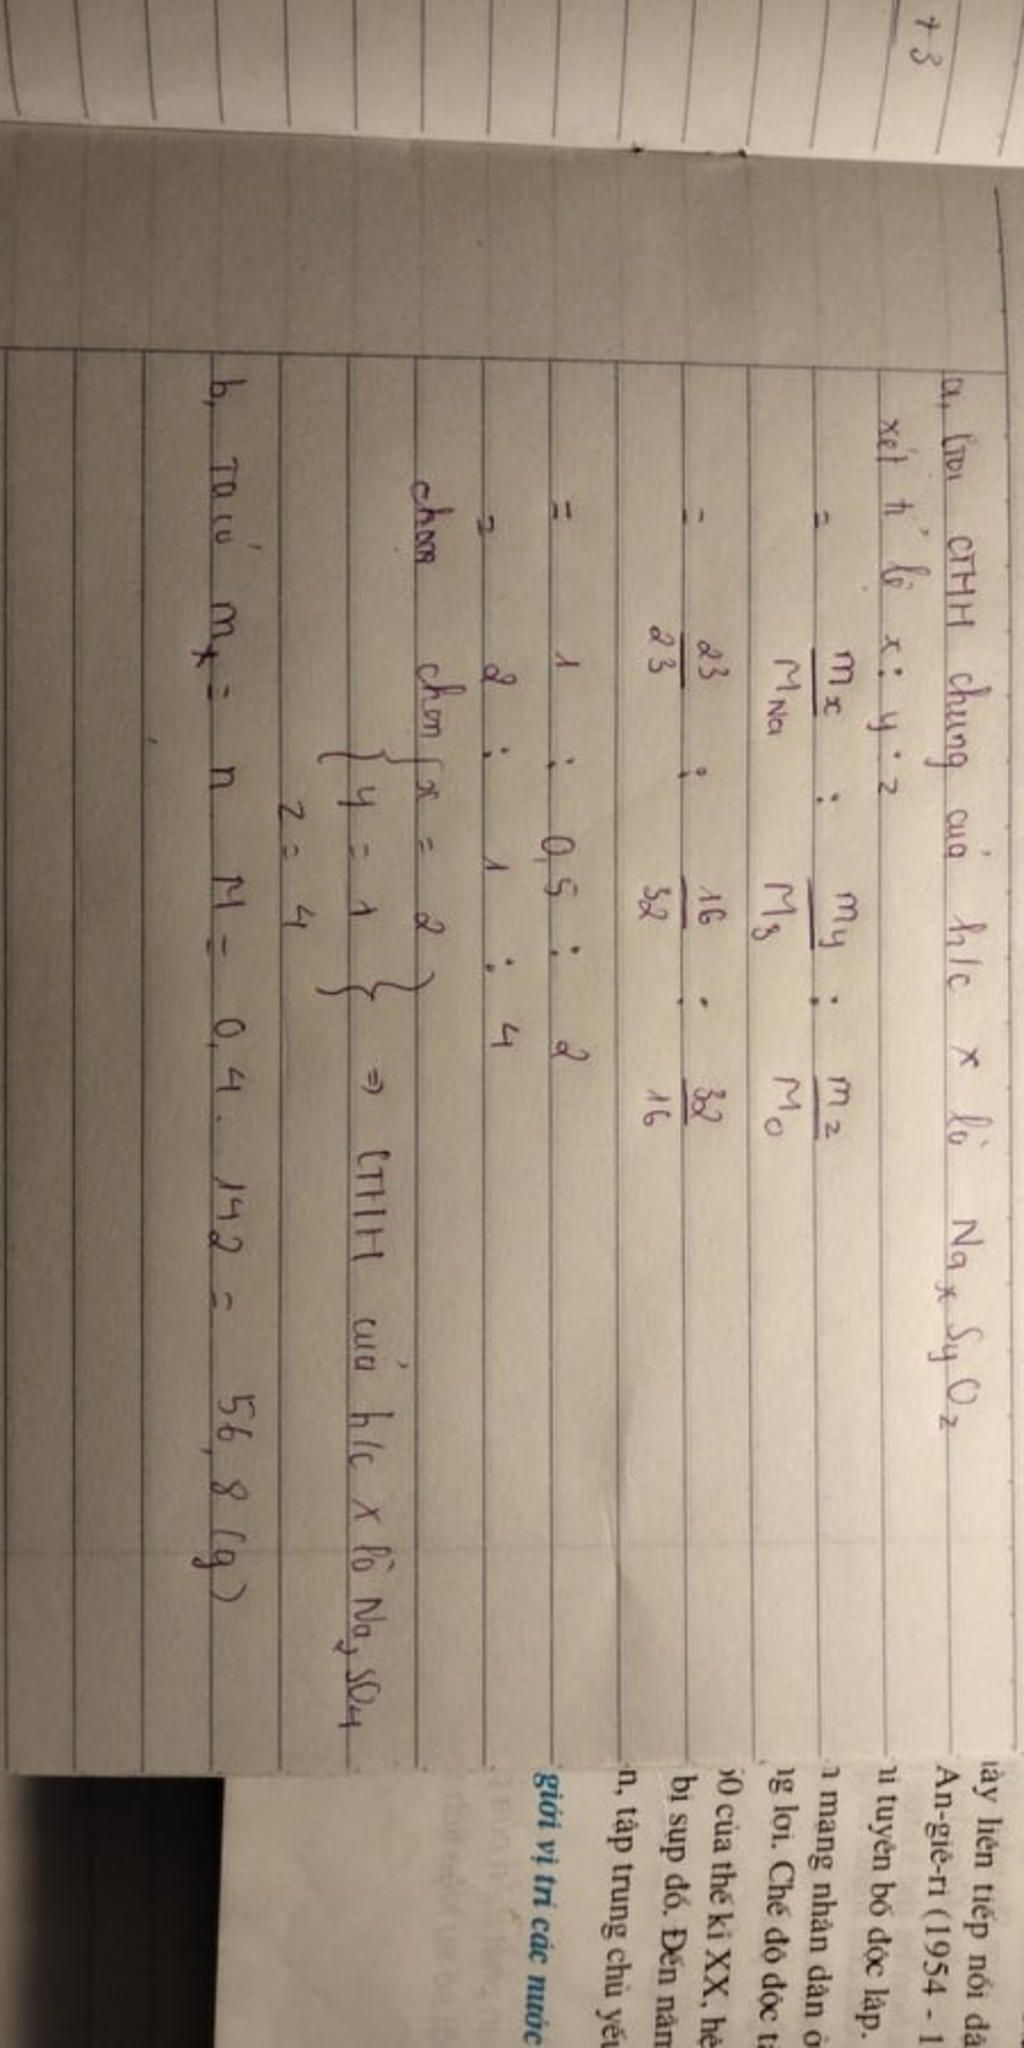 +3
a, Gọi CTHH chung của h/c x là NaxSyOz
xét tỉ lệ x : y : z
= mx/MNa : my/MS : mz/MO
= 23/23 : 16/32 : 32/16
= 1 : 0,5 : 2
= 2 : 1 : 4
chọn chọn x = 2
y = 1 => CTHH của h/c x là Na2SO4
z = 4
b, Ta có mx = n M = 0,4 . 142 = 56,8 (g)
này liên tiếp nổi
An-giê-ri (1954 - 1
tuyên bố độc lập.
mạng nhân dân ở
lợi. Chế độ độc
của thế kỉ XX, hệ
bị sụp đổ. Đến năm
tập trung chủ yếu
giới vị trí các nước